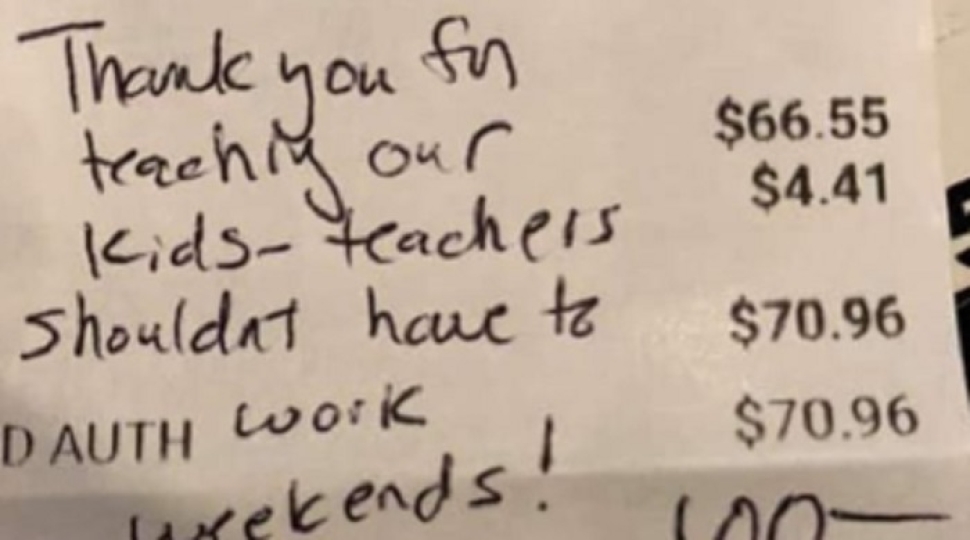 Thank you for
teaching our
$66.55
$4.41
kids- teachers
shouldnt have to
$70.96
D AUTH work
$70.96
weekends!